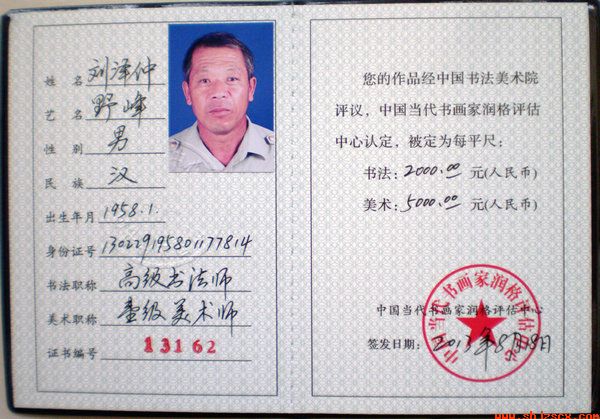 姓名 刘泽仲
艺名 野峰
性别 男
民族 汉
出生年月 1958.1.
身份证号 130229195801177814
书法职称 高级书法师
美术职称 壹级美术师
证书编号 13162
您的作品经中国书法美术院
评议，中国当代书画家润格评估
中心认定，被定为每平尺：
书法：2000.00 元(人民币)
美术：5000.00 元(人民币)
中国当代书画家润格评估中心
签发日期：2013年8月8日
www.shjzscx.com